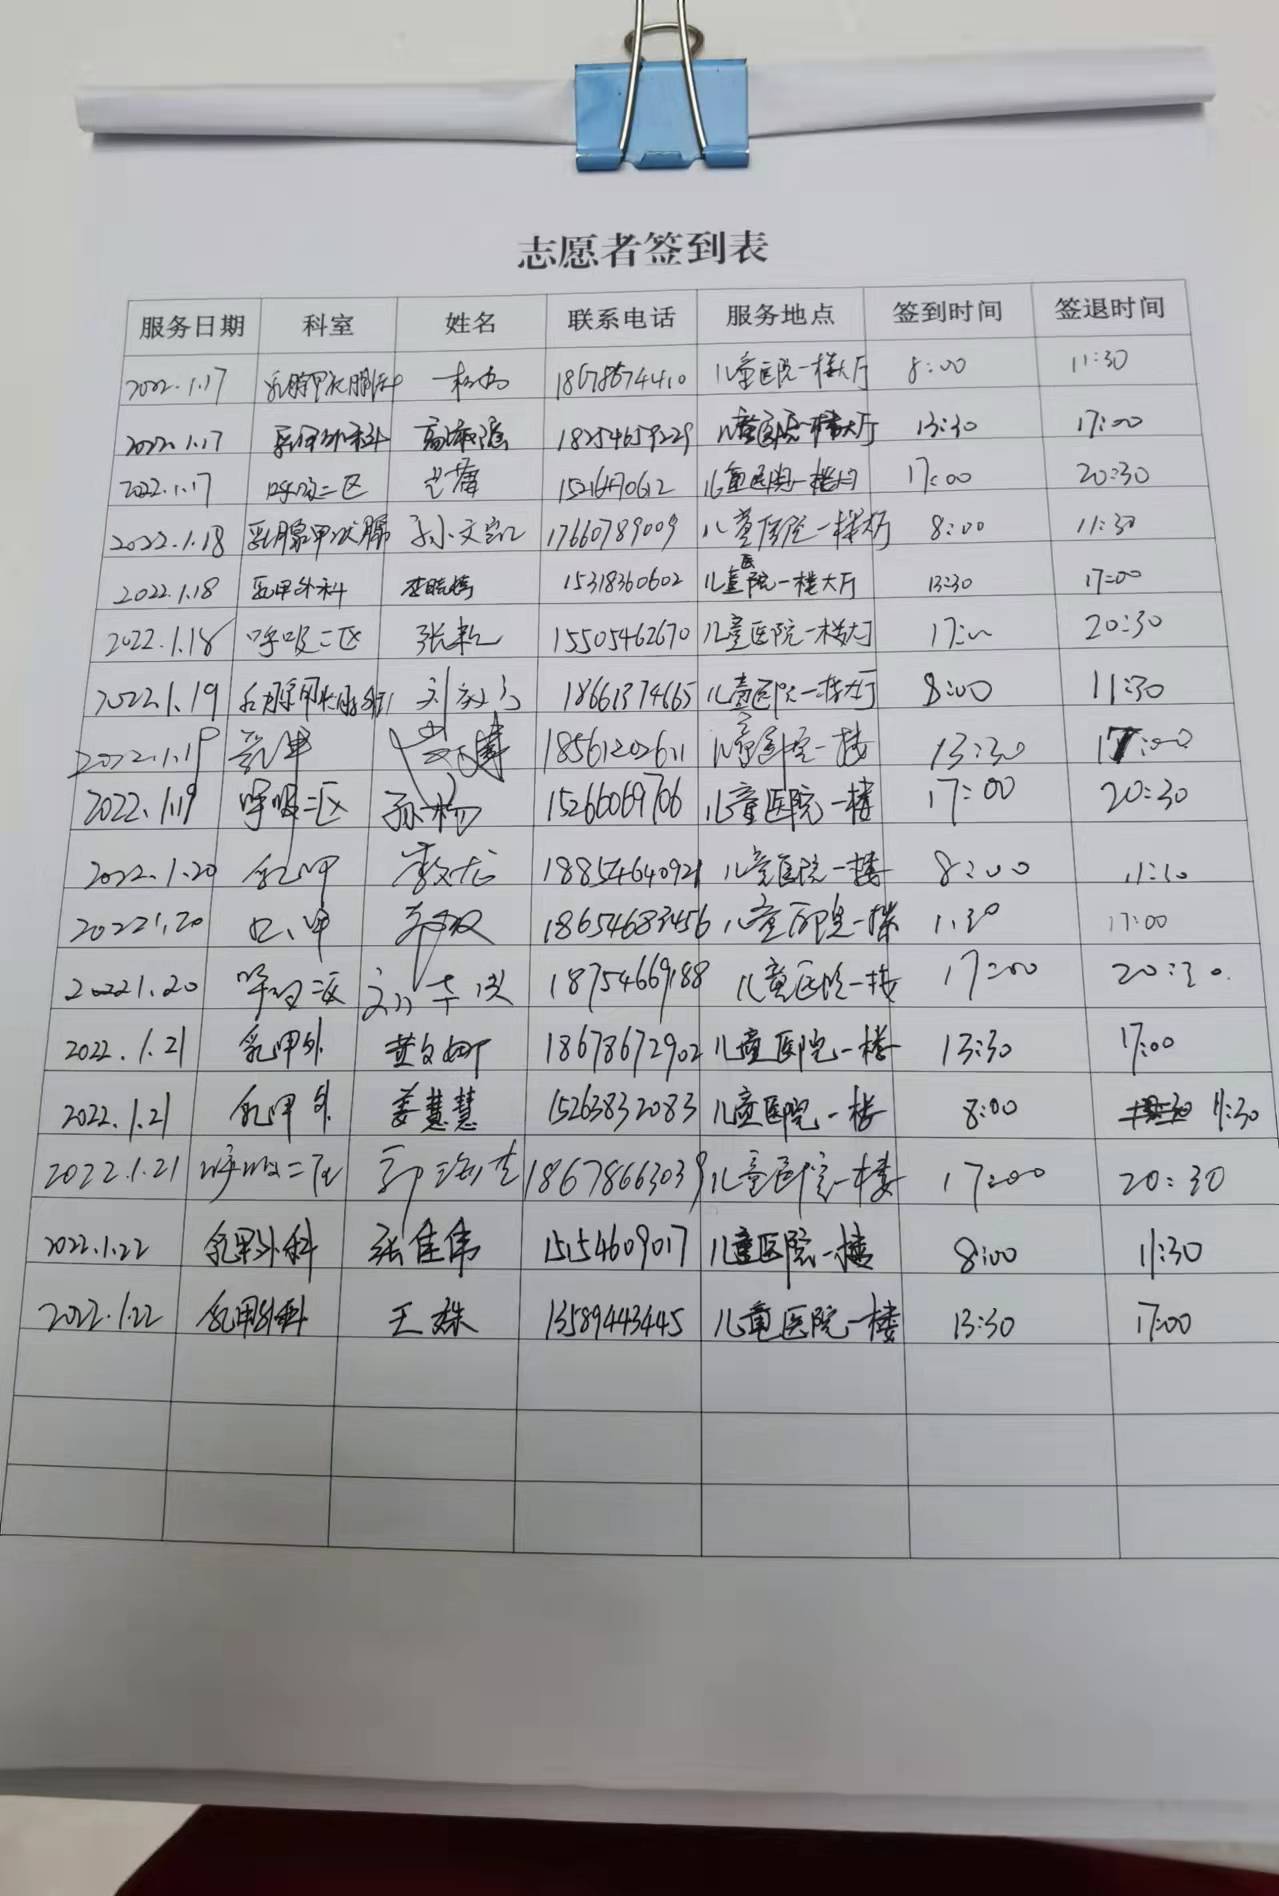 志愿者签到表
服务日期 科室 姓名 联系电话 服务地点 签到时间 签退时间
2022.1.17 18678674410 儿童医院一楼大厅 8:00 11:30
2022.1.17 乳甲外科 18254659229 儿童医院一楼大厅 13:30 17:00
2022.1.17 呼吸二区 15216470612 儿童医院一楼大厅 17:00 20:30
2022.1.18 乳腺甲状腺 孙文凯 17660789009 儿童医院一楼大厅 8:00 11:30
2022.1.18 乳甲外科 李晓婷 15318360602 儿童医院一楼大厅 13:30 17:00
2022.1.18 呼吸二区 15505462670 儿童医院一楼大厅 17:00 20:30
2022.1.19 18661374665 儿童医院一楼大厅 8:00 11:30
2022.1.19 乳甲 18561202611 儿童医院一楼 13:30 17:00
2022.1.19 呼吸二区 孙杨 15266069706 儿童医院一楼 17:00 20:30
2022.1.20 乳甲 18854640921 儿童医院一楼 8:00 11:30
2022 1.20 乳甲 18654683456 儿童医院一楼 1:30 17:00
2022 1.20 呼吸二区 18754669188 儿童医院一楼 17:00 20:30
2022.1.21 乳甲外 黄文娜 18678672902 儿童医院一楼 13:30 17:00
2022.1.21 乳甲外 姜慧慧 15263832083 儿童医院一楼 8:00 11:30
2022.1.21 呼吸二区 18678663039 儿童医院一楼 17:00 20:30
2022.1.22 乳甲外科 张佳伟 15154609017 儿童医院一楼 8:00 11:30
2022.1.22 乳甲外科 王姝 13589443445 儿童医院一楼 13:30 17:00